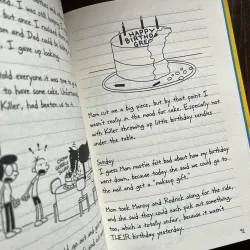 ed. I was still
but once I realised
Mom and Dad could be
I gave up looking.
told everyone it was time
to have some cake. Unfortun
Killer, had beaten us to it.
HAPPY
BIRTHD
GREG
Mom cut me a big piece, but by that point I
wasn't really in the mood for cake. Especially not
with Killer throwing up little birthday candles
under the table.
Sunday
I guess Mom mustve felt bad about how my birthday
went down, because today she said we could go to
the mall and get a "makeup gift."
Mom took Manny and Rodrick along for the ride,
and she said they could each pick out something,
too, which is totally unfair, because it wasn't
THEIR birthday yesterday.